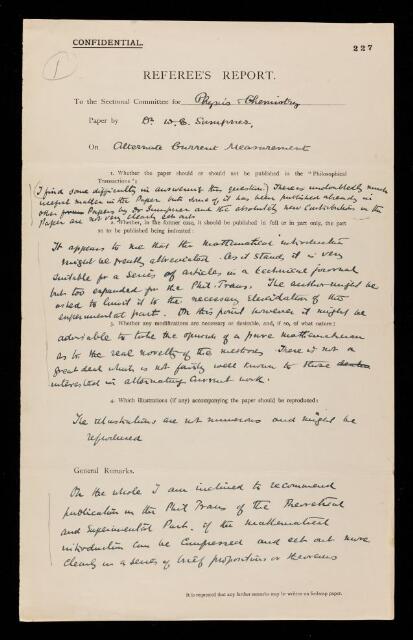 CONFIDENTIAL.
227
1
REFEREE'S REPORT.
To the Sectional Committee for Physics & Chemistry
Paper by Dr. W. E. Sumpner,
On Alternate Current Measurement
1. Whether the paper should or should not be published in the "Philosophical
Transactions":
(I find some difficulty in answering this question.) There is undoubtedly much
useful matter in the Paper but some of it has been published already in
other Papers by Dr Sumpner and the absolutely new contributions in the
Paper are not very clearly set out.
2. Whether, in the former case, it should be published in full or in part only, the part
so to be published being indicated:
It appears to me that the mathematical introduction
might be greatly abbreviated. As it stands it is very
suitable for a series of articles in a technical journal
but too expanded for the Phil: Trans. The author might be
asked to limit it to the necessary elucidation of the
experimental part. On this point however it might be
3. Whether any modifications are necessary or desirable, and, if so, of what nature:
advisable to take the opinion of a pure mathematician
as to the real novelty of the methods. There is not a
great deal which is not fairly well known to those
interested in alternating current work.
4. Which illustrations (if any) accompanying the paper should be reproduced:
The illustrations are not numerous and might be
reproduced
General Remarks.
On the whole I am inclined to recommend
publication in the Phil Trans of the Theoretical
and Experimental Part, if the mathematical
introduction can be compressed and set out more
clearly in a series of brief propositions or theorems
It is requested that any further remarks may be written on foolscap paper.